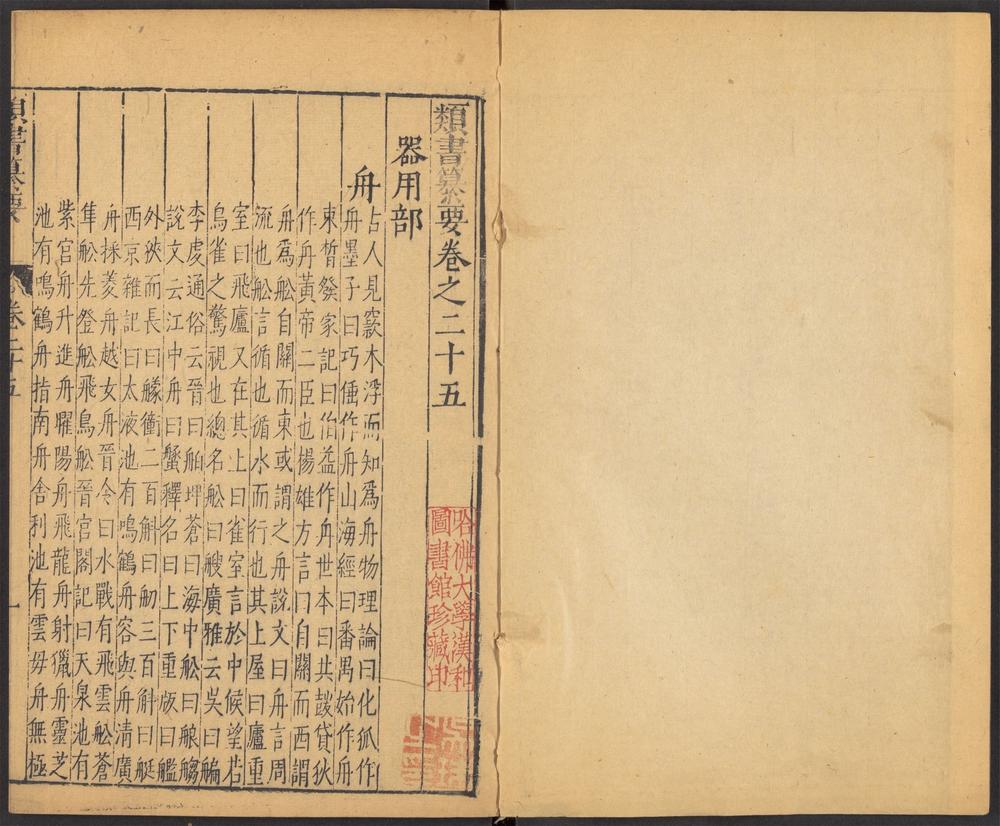 類書纂要卷之二十五
器用部
舟
占人見窾木浮而知為舟物理論曰化狐作
舟墨子曰巧倕作舟山海經曰番禺始作舟
東晳發家記曰伯益作舟世本曰共鼓貨狄
作舟黃帝二臣也楊雄方言曰自關而西謂
舟為舩自關而東或謂之舟說文曰舟言周
流也舩言循也循水而行也其上屋曰廬重
室曰飛廬又在其上曰雀室言於中候望若
鳥雀之驚視也總名舩曰艘廣雅云吳曰艑
李虔通俗云晉曰舶埤蒼曰海中舩曰艆𦪇
說文云江中舟曰蠡釋名曰上下重版曰艦
外狹而長曰艨衝二百斛曰舠三百斛曰艇
西京雜記曰太液池有鳴鶴舟容與舟清廣
舟採菱舟越女舟晉令曰水戰有飛雲舩蒼
隼舩先登舩飛鳥舩晉宮閣記曰天泉池有
紫宮舟升進舟曜陽舟飛龍舟射獵舟靈芝
池有鳴鶴舟指南舟舍利池有雲毋舟無極
類書纂要 卷二十五 一
哈佛大學漢和
圖書館珍藏印